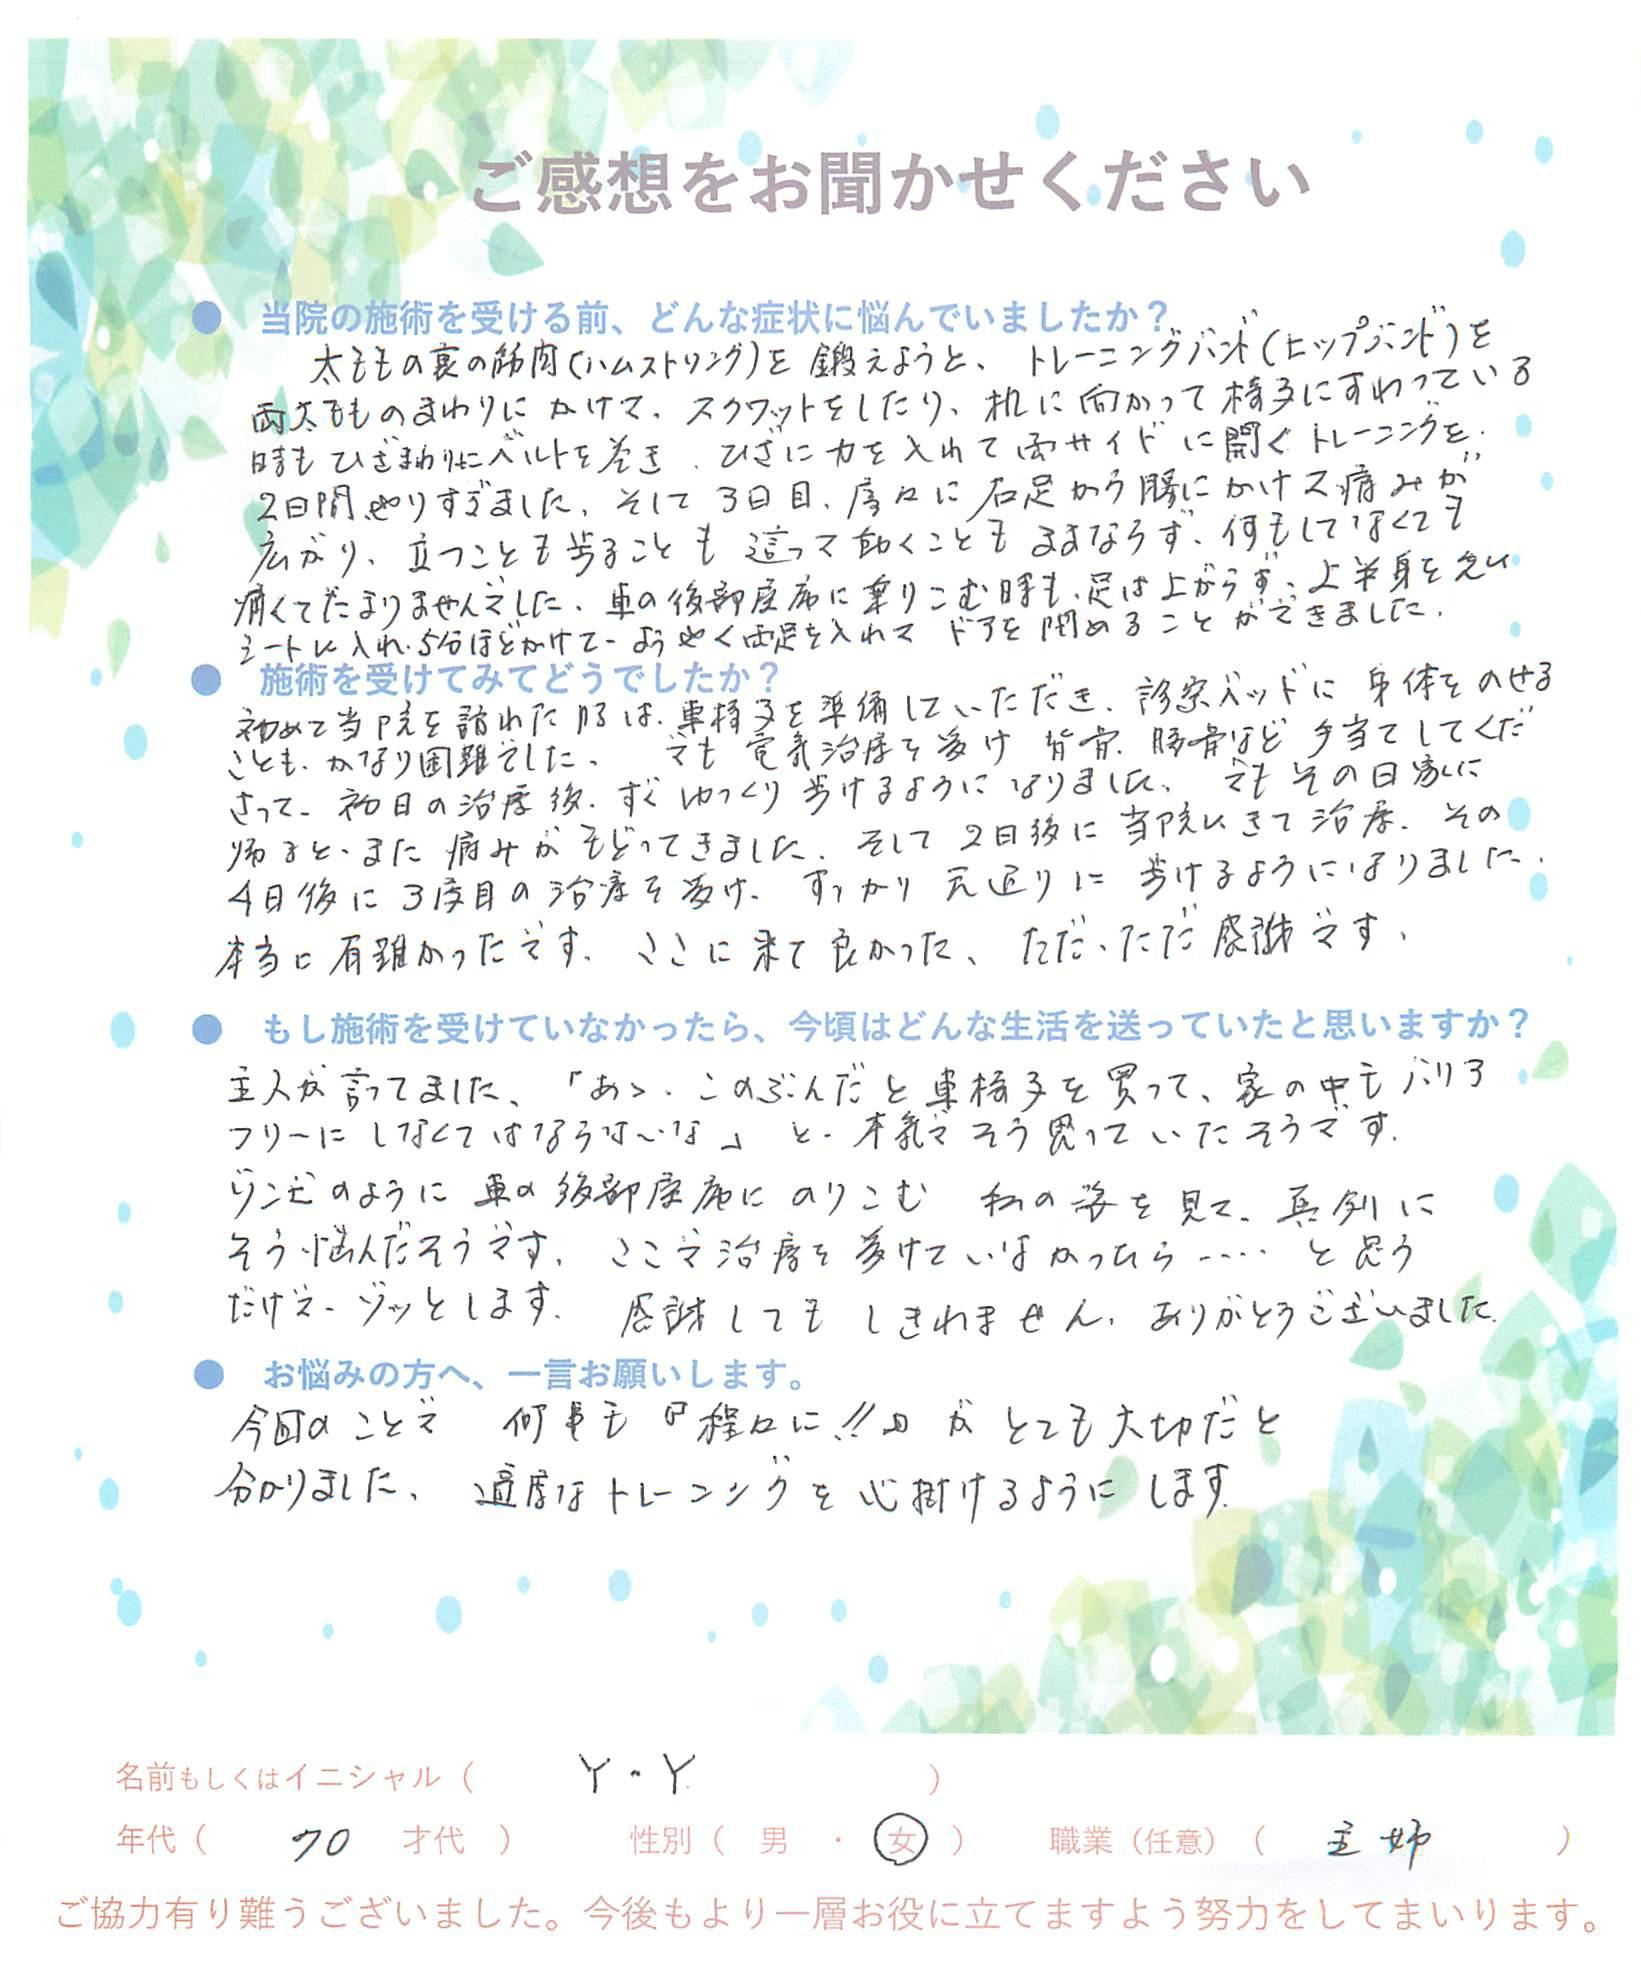 ご感想をお聞かせください
● 当院の施術を受ける前、どんな症状に悩んでいましたか？
太ももの裏の筋肉(ハムストリング)を鍛えようと、トレーニングバンド(ヒップバンド)を
両太もものまわりにかけて、スクワットをしたり、机に向かって椅子にすわっている
時もひざまわりにベルトを巻き、ひざに力を入れて両サイドに開くトレーニングを、
2日間、やりすぎました。そして3日目、右足から腰にかけて痛みが
広がり、立つことも歩ることも這って動くこともままならず、何もしてなくても
痛くてたまりませんでした。車の後部座席に乗りこむ時も、足は上がらず、上半身を先に
シートに入れ、5分ほどかけて、ようやく両足を入れてドアを閉めることができました。
● 施術を受けてみてどうでしたか？
初めて当院を訪れた時は、車椅子を準備していただき、診察ベッドに身体をのせる
ことも、かなり困難でした。でも電気治療を受け背骨、腰骨など手当てしてくだ
さって、初日の治療後、すぐゆっくり歩けるようになりました。でもその日家に
帰ると、また痛みがもどってきました。そして2日後に当院にきて治療、その
4日後に3度目の治療を受け、すっかり元通りに歩けるようになりました。
本当に有難かったです。ここに来て良かった、ただ、ただ感謝です。
● もし施術を受けていなかったら、今頃はどんな生活を送っていたと思いますか？
主人が言ってました、「あゝ、このぶんだと車椅子を買って、家の中もバリア
フリーにしなくてはならないな」と、本気でそう思っていたそうです。
ゾンビのように車の後部座席にのりこむ私の姿を見て、真剣に
そう悩んだそうです。ここで治療を受けていなかったら‥‥と思う
だけで、ゾッとします。感謝してもしきれません。ありがとうございました。
● お悩みの方へ、一言お願いします。
今回のことで何事も『程々に!!』がとても大切だと
分かりました、適度なトレーニングを心掛けるようにします。
名前もしくはイニシャル（ Y・Y ）
年代（ 70 才代 ） 性別（ 男 ・ 女 ） 職業（任意）（ 主婦 ）
ご協力有り難うございました。今後もより一層お役に立てますよう努力をしてまいります。